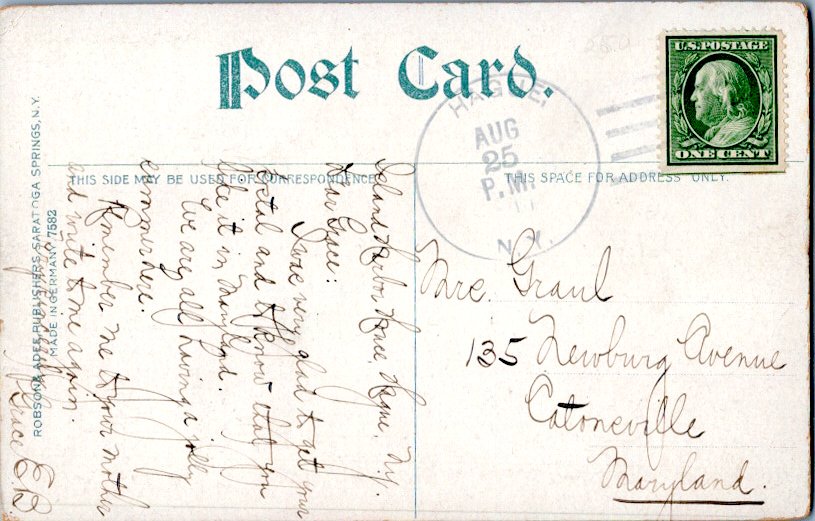 Post Card.
U.S. POSTAGE
ONE CENT
HAGUE,
AUG
25
P.M.
11
N.Y.
THIS SIDE MAY BE USED FOR CORRESPONDENCE
THIS SPACE FOR ADDRESS ONLY.
Island Harbor House, Hague, N.Y.
Dear Grace:
I was very glad to get your
postal and to know that you
like it in Maryland.
We are all having a jolly
summer here.
Remember me to your mother
and write to me again.
Grace
Mrs. Graul
135 Newburg Avenue
Catonsville
Maryland.
ROBSON & ADEE, PUBLISHERS, SARATOGA SPRINGS, N.Y.
MADE IN GERMANY 7582